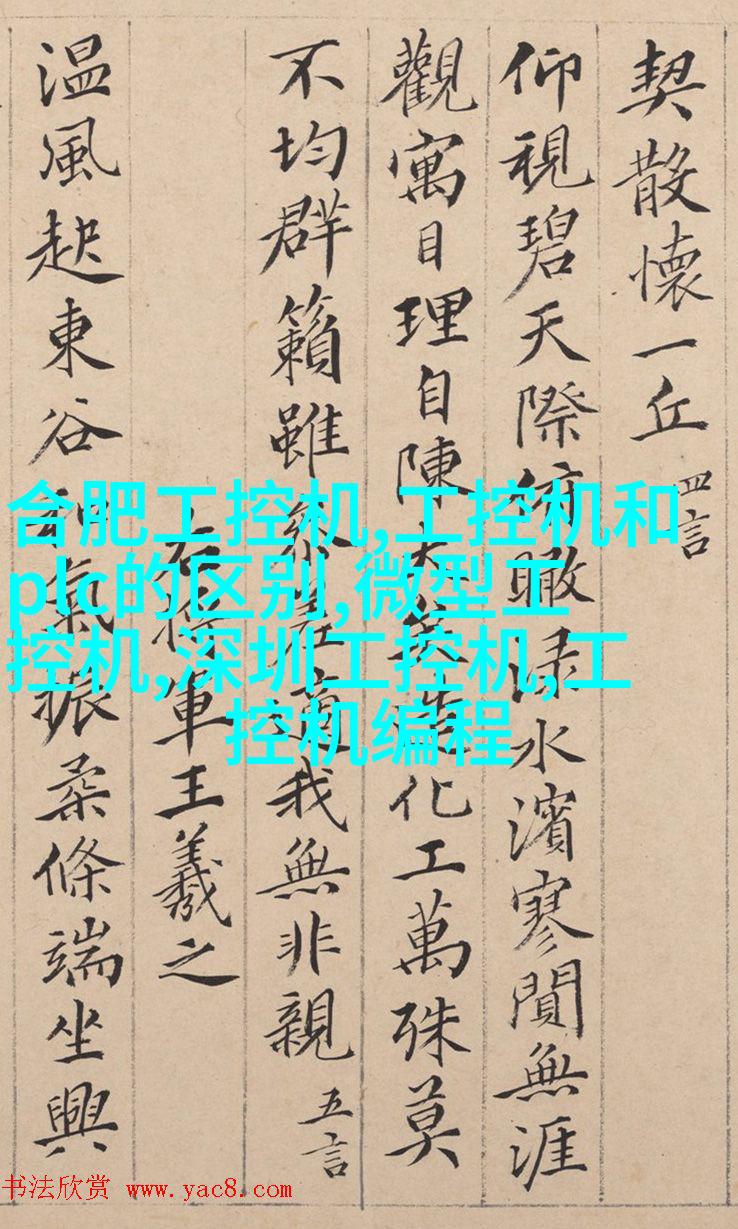 契散懷一丘 四言
仰視碧天際俯瞰淥水濱寥闃無涯
觀寓目理自陳大矣造化工萬殊莫
不均群籟雖參差適我無非親 五言
右將軍王羲之
温風起東谷和氣振柔條端坐興
合肥工控机,工控机和
plc的区别,微型工
控机,深圳工控机,工
控机编程
书法欣赏 www.yac8.com